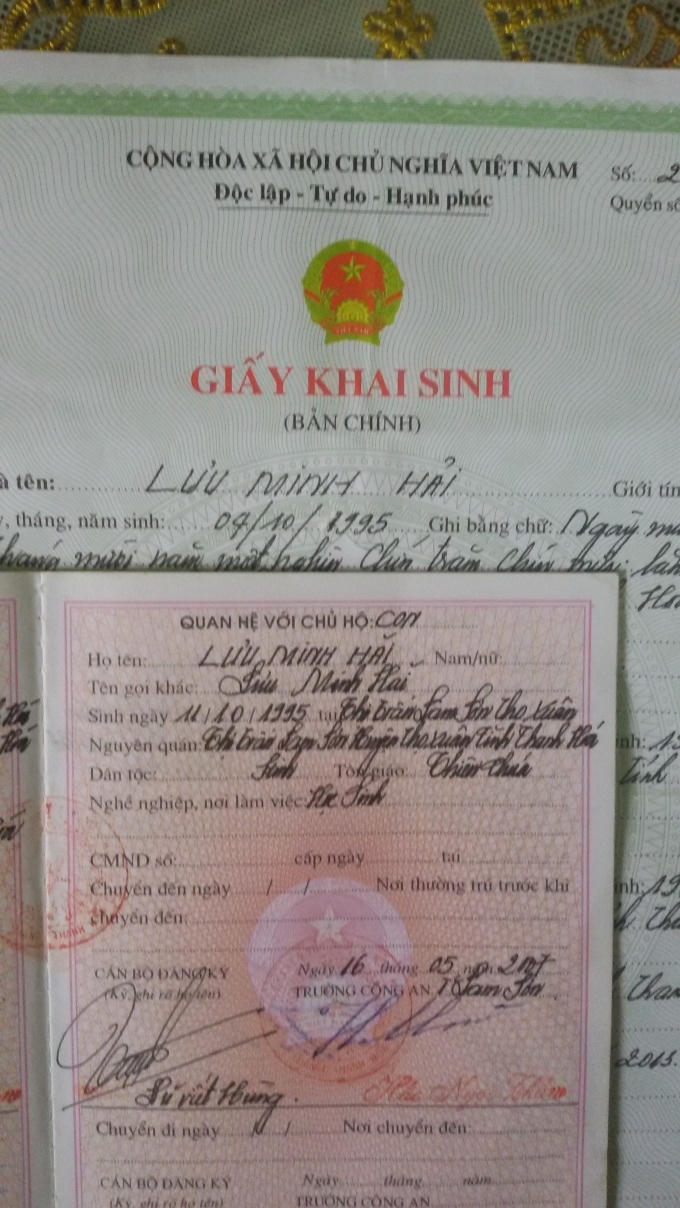 CỘNG HÒA XÃ HỘI CHỦ NGHĨA VIỆT NAM
Độc lập - Tự do - Hạnh phúc
Số:
Quyển số
GIẤY KHAI SINH
(BẢN CHÍNH)
à tên: LƯU MINH HẢI Giới tín
, tháng, năm sinh: /10/1995 Ghi bằng chữ: Ngày
tháng mười năm một nghìn chín trăm chín
QUAN HỆ VỚI CHỦ HỘ: CON
Họ tên: LƯU MINH HẢI Nam/nữ:
Tên gọi khác: Lưu Minh Hải
Sinh ngày 11/10/1995 tại Thị trấn Lam Sơn Thọ Xuân
Nguyên quán: Thị trấn Lam Sơn Huyện Thọ Xuân Tỉnh Thanh Hoá
Dân tộc: Kinh Tôn giáo: Thiên chúa
Nghề nghiệp, nơi làm việc: Học Sinh
CMND số: cấp ngày tại
Chuyển đến ngày / / Nơi thường trú trước khi
chuyển đến:
CÁN BỘ ĐĂNG KÝ
(Ký, ghi rõ họ tên)
Ngày 16 tháng 05 năm 2007
TRƯỞNG CÔNG AN T Lam Sơn
Hùng
Chuyển đi ngày / / Nơi chuyển đến:
CÁN BỘ ĐĂNG KÝ
(Ký, ghi rõ họ tên)
Ngày tháng năm
TRƯỞNG CÔNG AN
inh: 19
Tỉnh
inh: 19
2013.